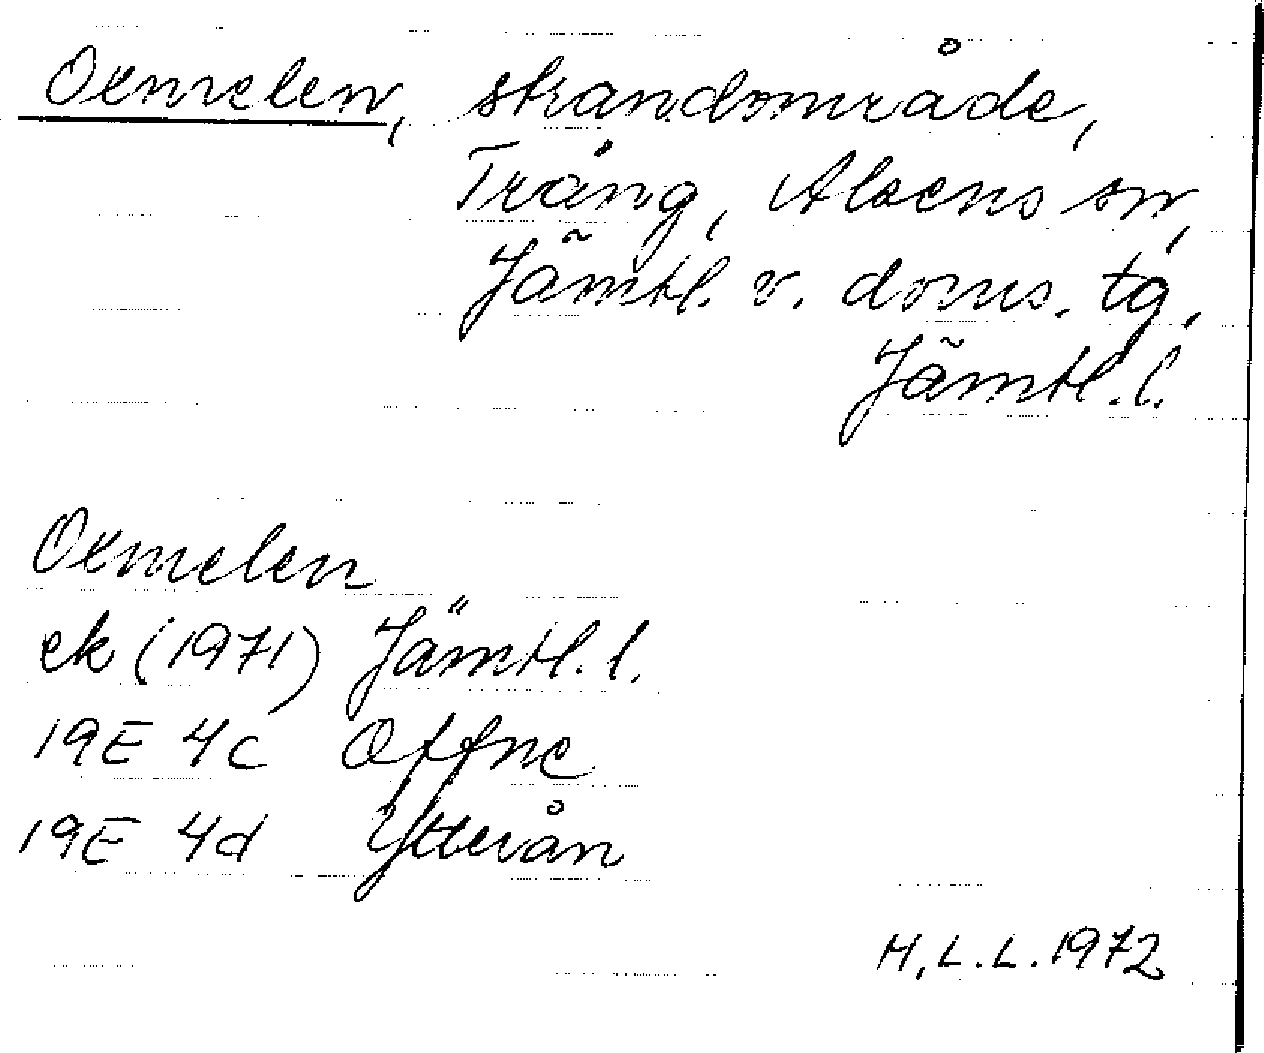 Oxmelen, strandområde,
Trång, Alsens sn,
Jämtl. v. doms. tg,
Jämtl. l.
Oxmelen
ek (1971) Jämtl. l.
19E 4c Offne
19E 4d Ytterån
H.L.L. 1972